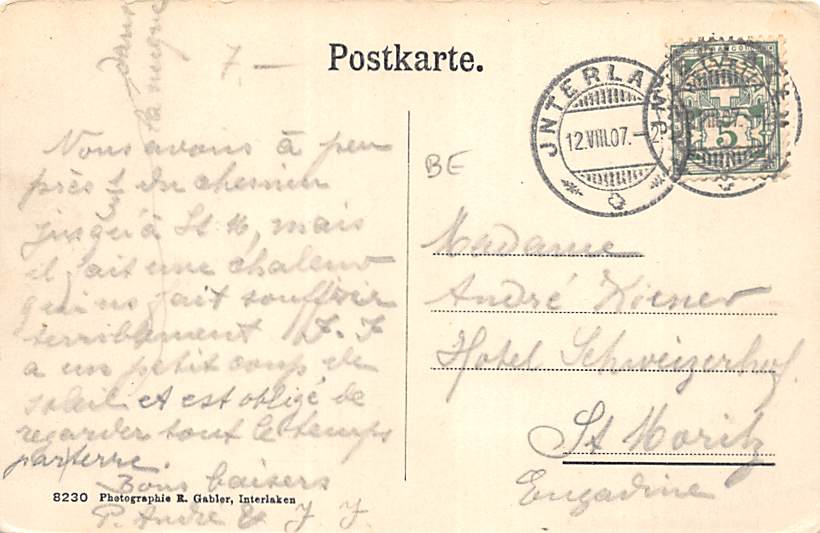 Postkarte.
7.—
dans
la neige
JNTERLAKEN
12.VIII.07.–2
HELVETIA
5
BE
Nous avons à peu
près ½ du chemin
jusqu'à St M, mais
il fait une chaleur
qui ns fait souffrir
terriblement J. J
a un petit coup de
soleil et est obligé de
regarder tout le temps
par terre.
Bons baisers
P. André & J J
Madame
André
Hotel Schweizerhof.
St Moritz
Engadine
8230 Photographie R. Gabler, Interlaken